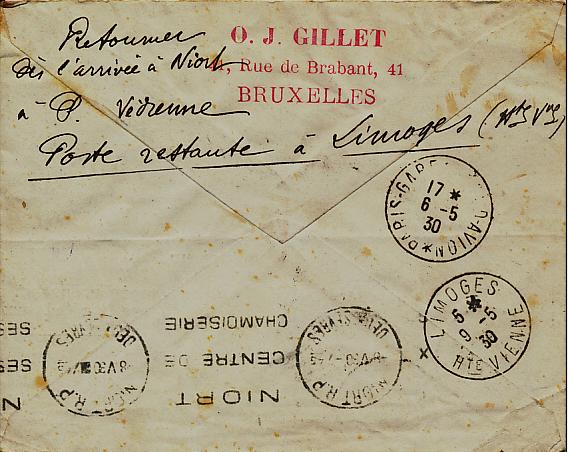 Retourner
dès l'arrivée à Niort
à P. Védrenne
Poste restante à Limoges (Hte Vne)
O. J. GILLET
41, Rue de Brabant, 41
BRUXELLES
PARIS-GARE D-AVION
17 *
6 -5
30
LIMOGES
5 *
9 -5
30
HTE VIENNE
NIORT R.P.
DEUX SEVRES
NIORT
CENTRE DE
CHAMOISERIE
NIORT R.P.
DEUX SEVRES
N
SES
SES